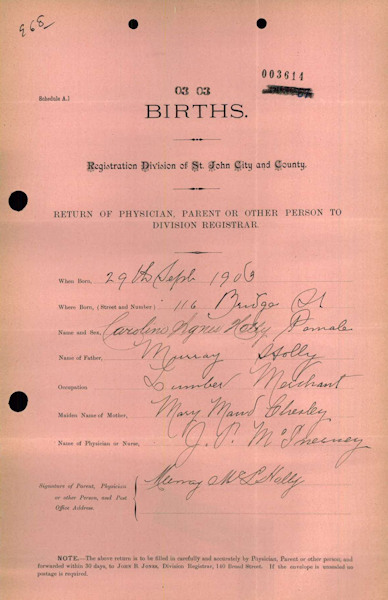 968
003614
03 03
Schedule A.]
BIRTHS.
Registration Division of St. John City and County.
RETURN OF PHYSICIAN, PARENT OR OTHER PERSON TO
DIVISION REGISTRAR.
When Born, 29th Sept 1903
Where Born, (Street and Number) 116 Bridge St
Name and Sex, Caroline Agnes Holly Female
Name of Father, Murray Holly
Occupation Lumber Merchant
Maiden Name of Mother, Mary Maud Chesley
Name of Physician or Nurse, J. P. McInerney
Signature of Parent, Physician
or other Person, and Post
Office Address.
Murray McL Holly
NOTE.—The above return is to be filled in carefully and accurately by Physician, Parent or other person, and
forwarded within 30 days, to JOHN B. JONES, Division Registrar, 140 Broad Street. If the envelope is unsealed no
postage is required.